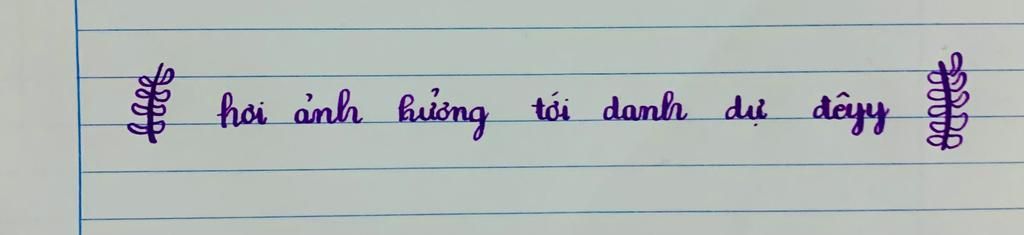 hơi ảnh hưởng tới danh dự đêyy